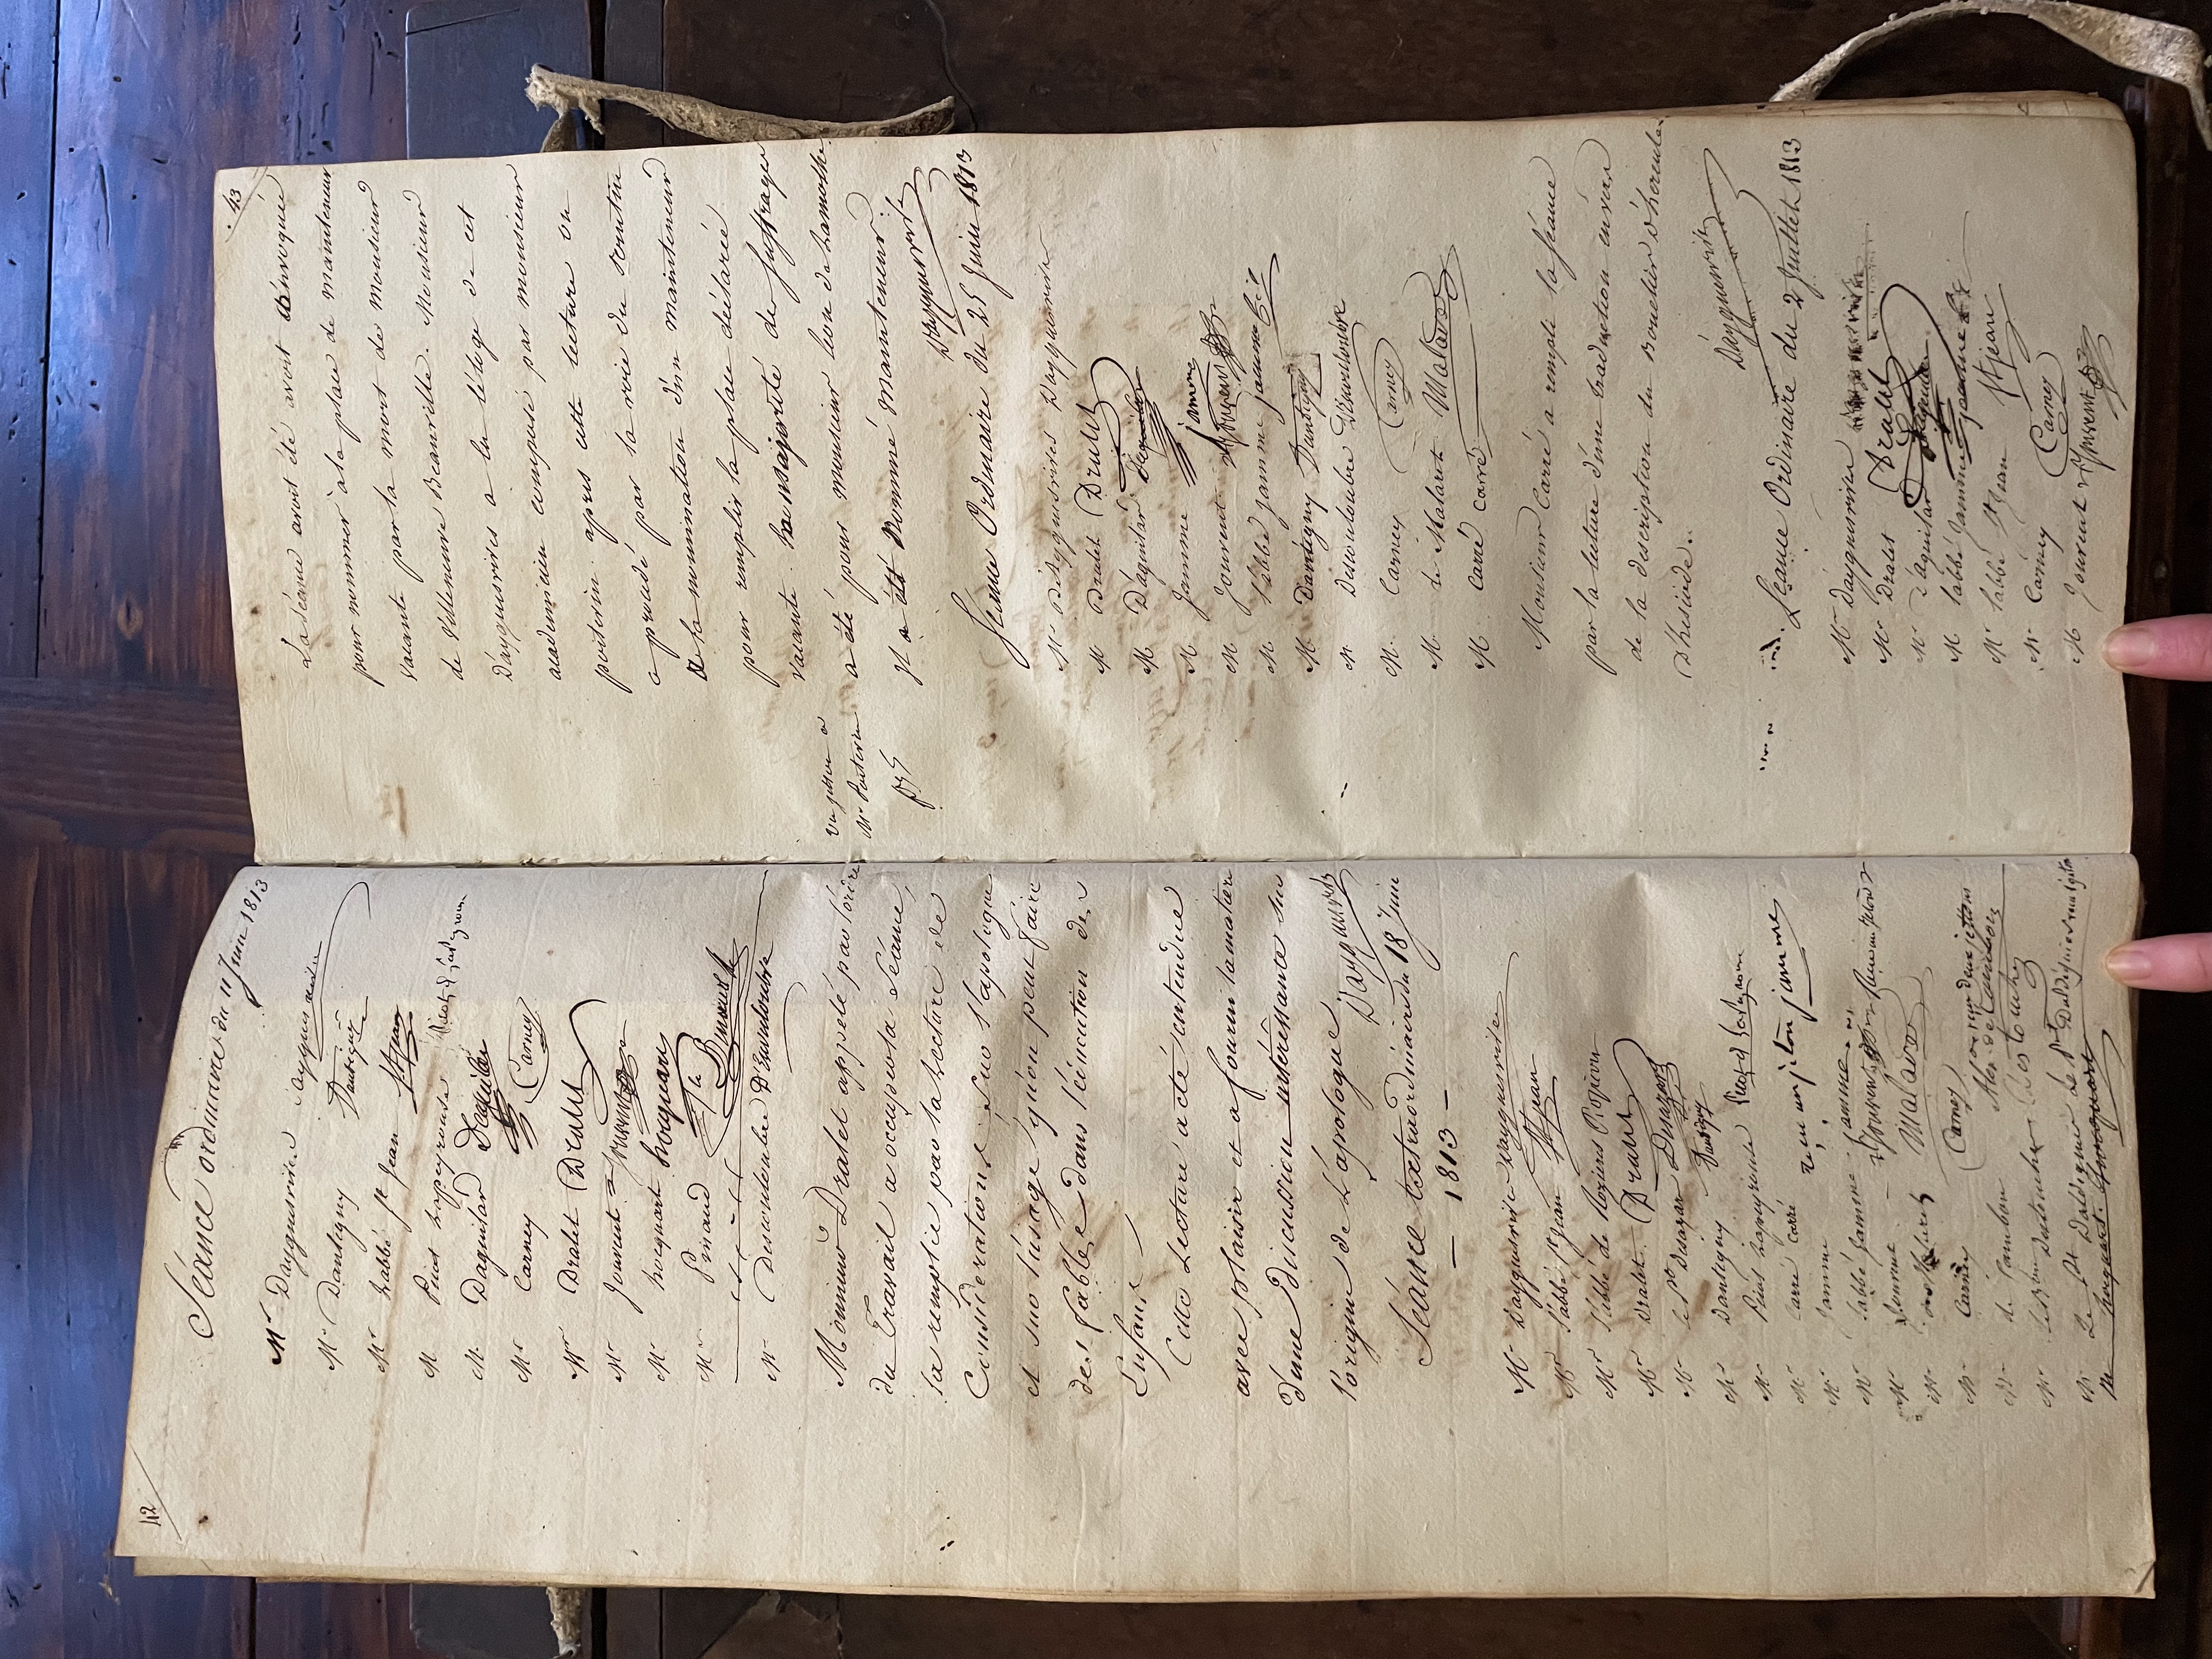 42
Séance ordinaire du 11 Juin 1813
Mr Dayguesvives Dayguesvives
Mr Dantigny Dantigny
Mr Labbé St Jean St Jean
M Picot Lapeyrouse Picot de Lapeyrouse
M. Daguilar Daguilar
Mr Carney Carney
Mr Dralet Dralet
Mr Jouvent Jouvent
Mr hocquart hocquart
Mr Pinaud
Mr Descouloubre D'Escouloubre
Monsieur Dralet appelé par l'ordre
du Travail a occupé la Séance,
la remplie par la lecture de
Considerations Sur l'apologue
et sur l'usage qu'on peut faire
des fables dans l'éducation des
Enfans
Cette Lecture a été entendue
avec plaisir et a fourni la matiere
d'une discussion intéressante sur
l'origine de l'apologue Dayguesvives
Séance Extraordinaire du 18 Juin
— 1813 —
Mr Dayguesvives Dayguesvives
Mr l'abbé St Jean St Jean
Mr l'abbé de Rozieres
Mr Dralet Dralet
Mr Desazars
Mr Dantigny Dantigny
Mr Picot Lapeyrouse Picot de Lapeyrouse
Mr Carré Carré
Mr Jamme
Mr l'abbé Jamme
Mr Jouvent Jouvent
Mr Malaret
Mr Carney Carney
Mr de Cambon
Mr hocquart
43
La Séance avait été avoit convoquée
pour nommer à la place de mainteneur
vacante par la mort de Monsieur
de Villeneuve Beauville. Monsieur
Dayguesvives a lu l'éloge de cet
académicien composé par monsieur
poitevin. apres cette lecture on
a procédé par la voie du scrutin
à la nomination d'un mainteneur
pour remplir la place déclarée
vacante. la majorité des suffrages
a été pour monsieur leon de Lamothe.
Il a été Nommé Mainteneur
Dayguesvives
un jetton a
Mr Poitevin
Séance Ordinaire du 25 Juin 1813
Mr Dayguesvives Dayguesvives
M Dralet Dralet
M D'aguilar D'aguilar
M Jamme Jamme
M Jouvent Jouvent
M. l'abbé Jamme Jamme
M Dantigny Dantigny
M Descouloubre D'Escouloubre
M. Carney Carney
M. de Malaret Malaret
M. Carré Carré
Monsieur Carré a rempli la séance
par la lecture d'une traduction en vers
de la description du Bouclier d'hercule
d'hésiode.
Dayguesvives
Séance Ordinaire du 2 Juillet 1813
Mr Dayguesvives
Mr Dralet Dralet
Mr d'aguilar D'aguilar
M l'abbé Jamme Jamme
Mr l'abbé St Jean St Jean
Mr Carney Carney
M Jouvent Jouvent